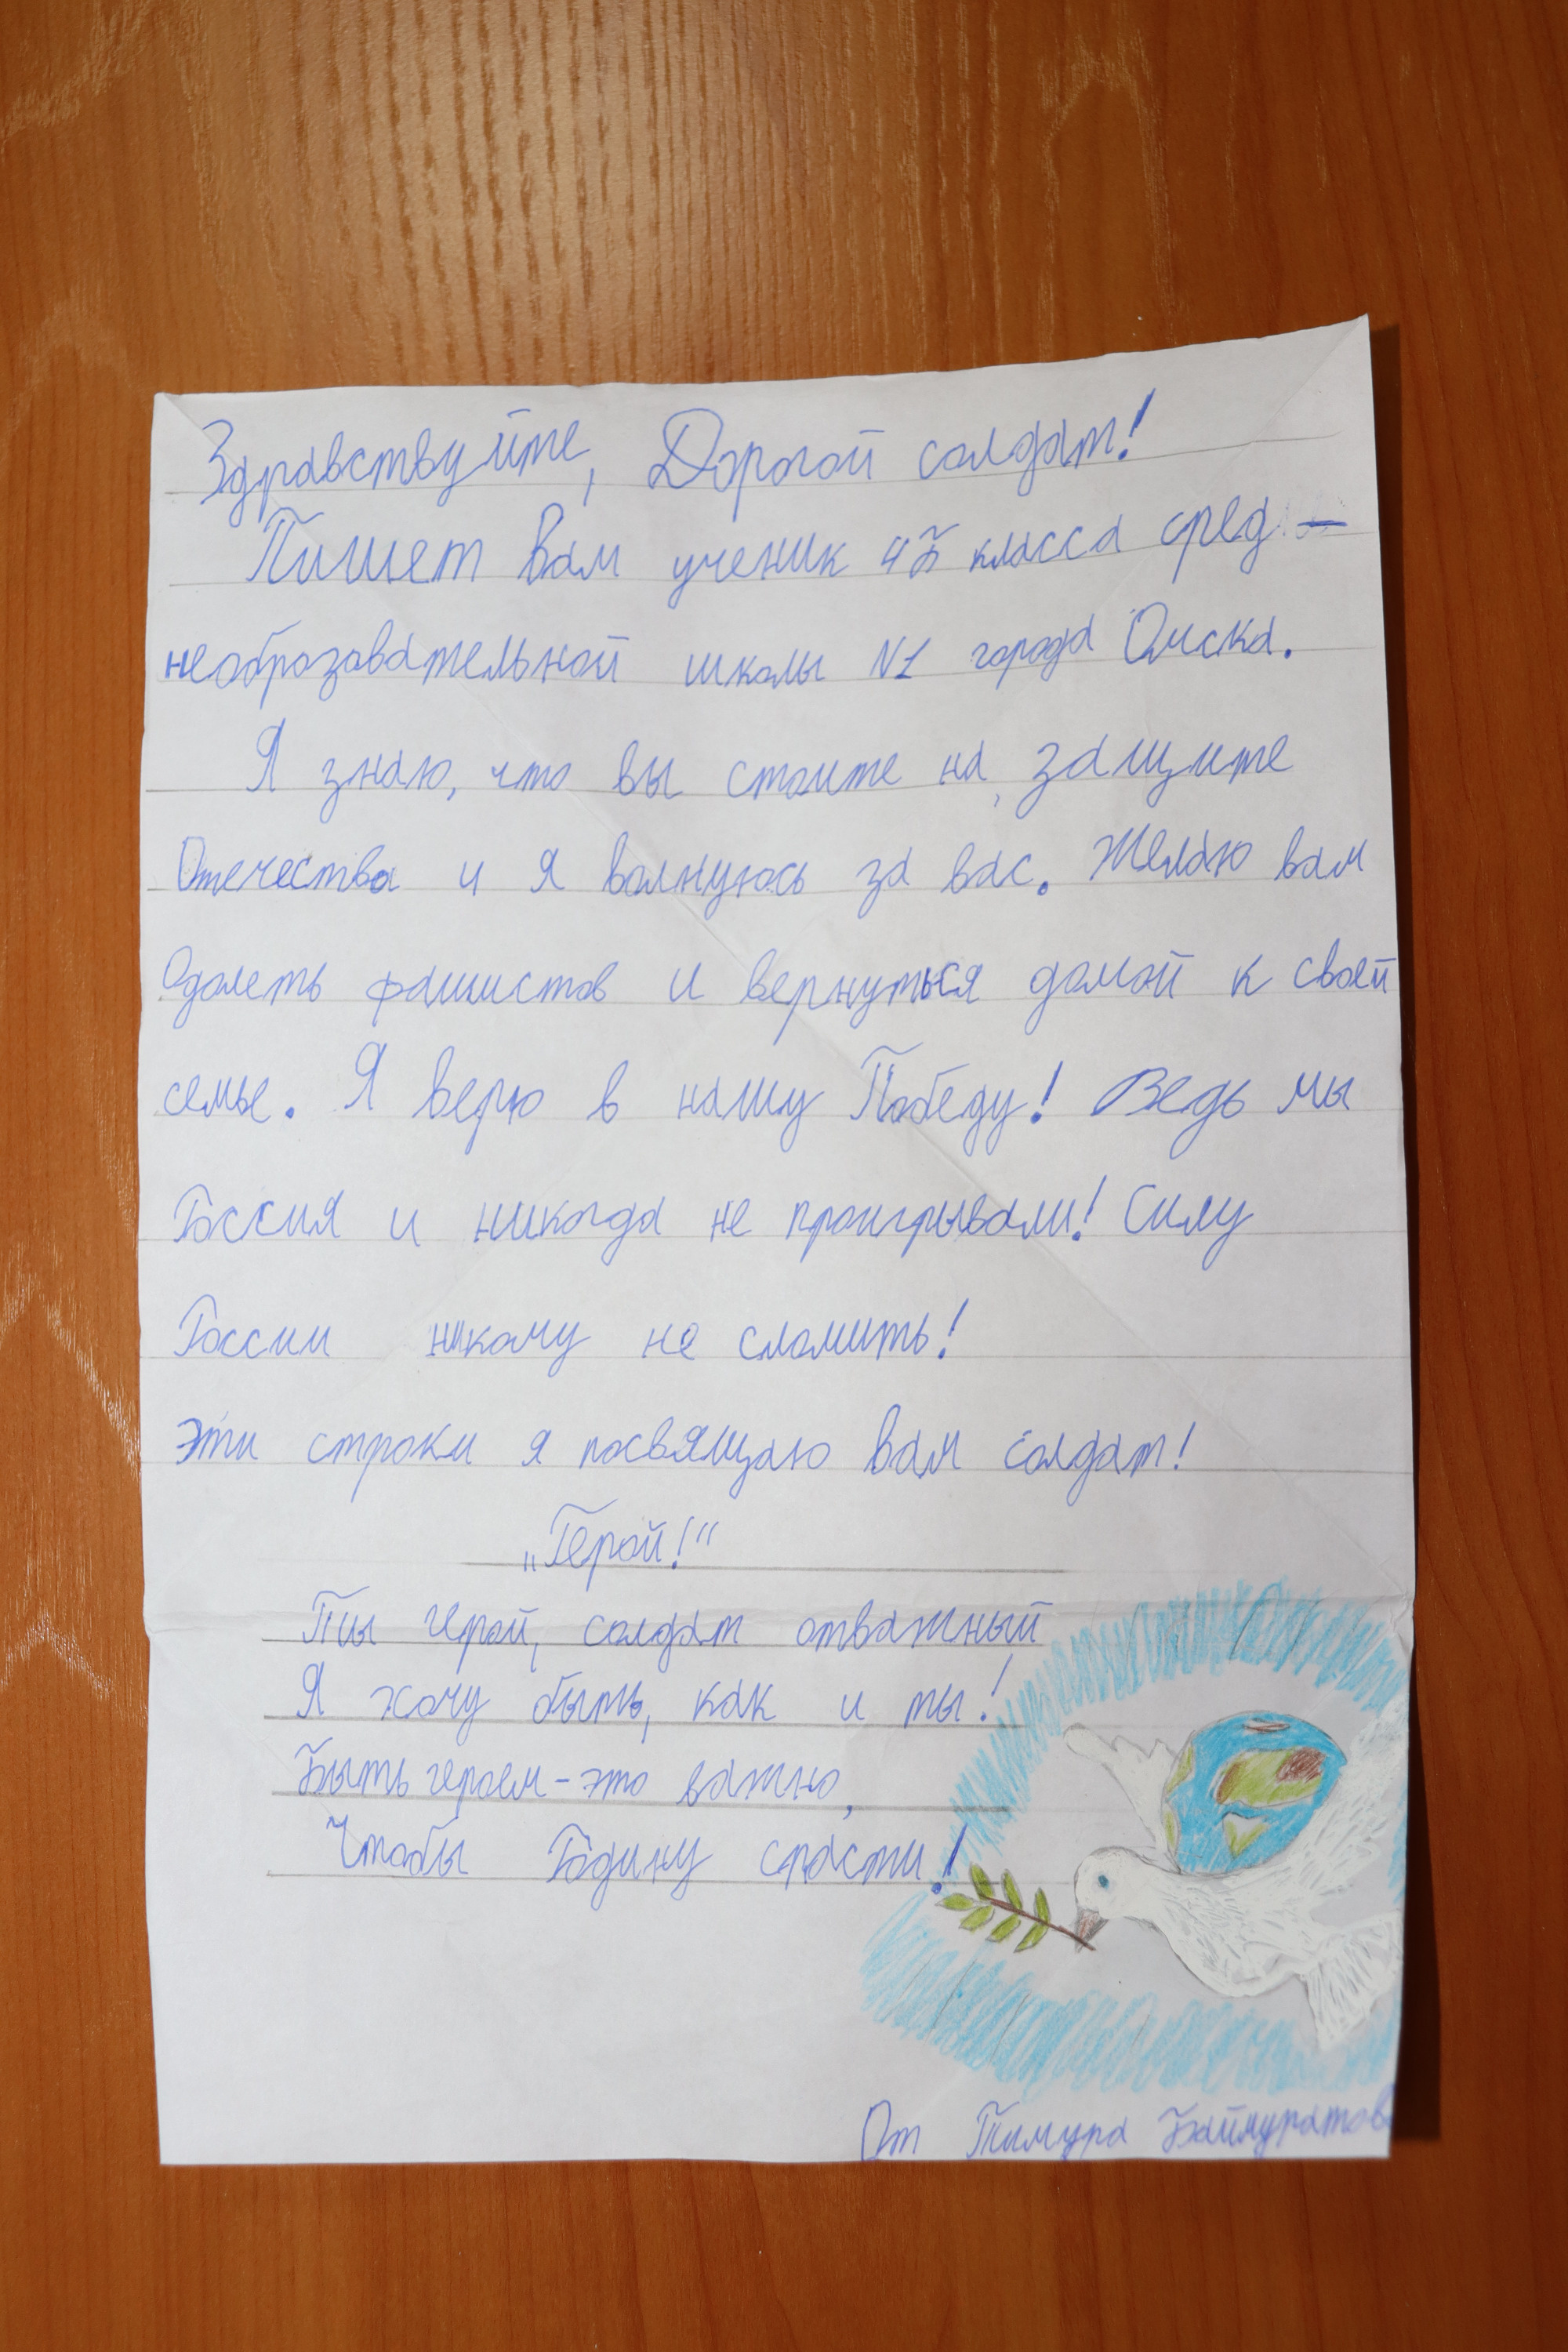 Здравствуйте, Дорогой солдат!
Пишет вам ученик 4Б класса сред-
необразовательной школы N1 города Омска.
Я знаю, что вы стоите на защите
Отечества и я волнуюсь за вас. Желаю вам
одолеть фашистов и вернуться домой к своей
семье. Я верю в нашу Победу! Ведь мы
Россия и никогда не проигрывали! Силу
России никому не сломить!
Эти строки я посвящаю вам солдат!
„Герой!“
Ты герой, солдат отважный
Я хочу быть, как и ты!
Быть героем - это важно,
Чтобы Родину спасти!
От Тимура Баймуратова